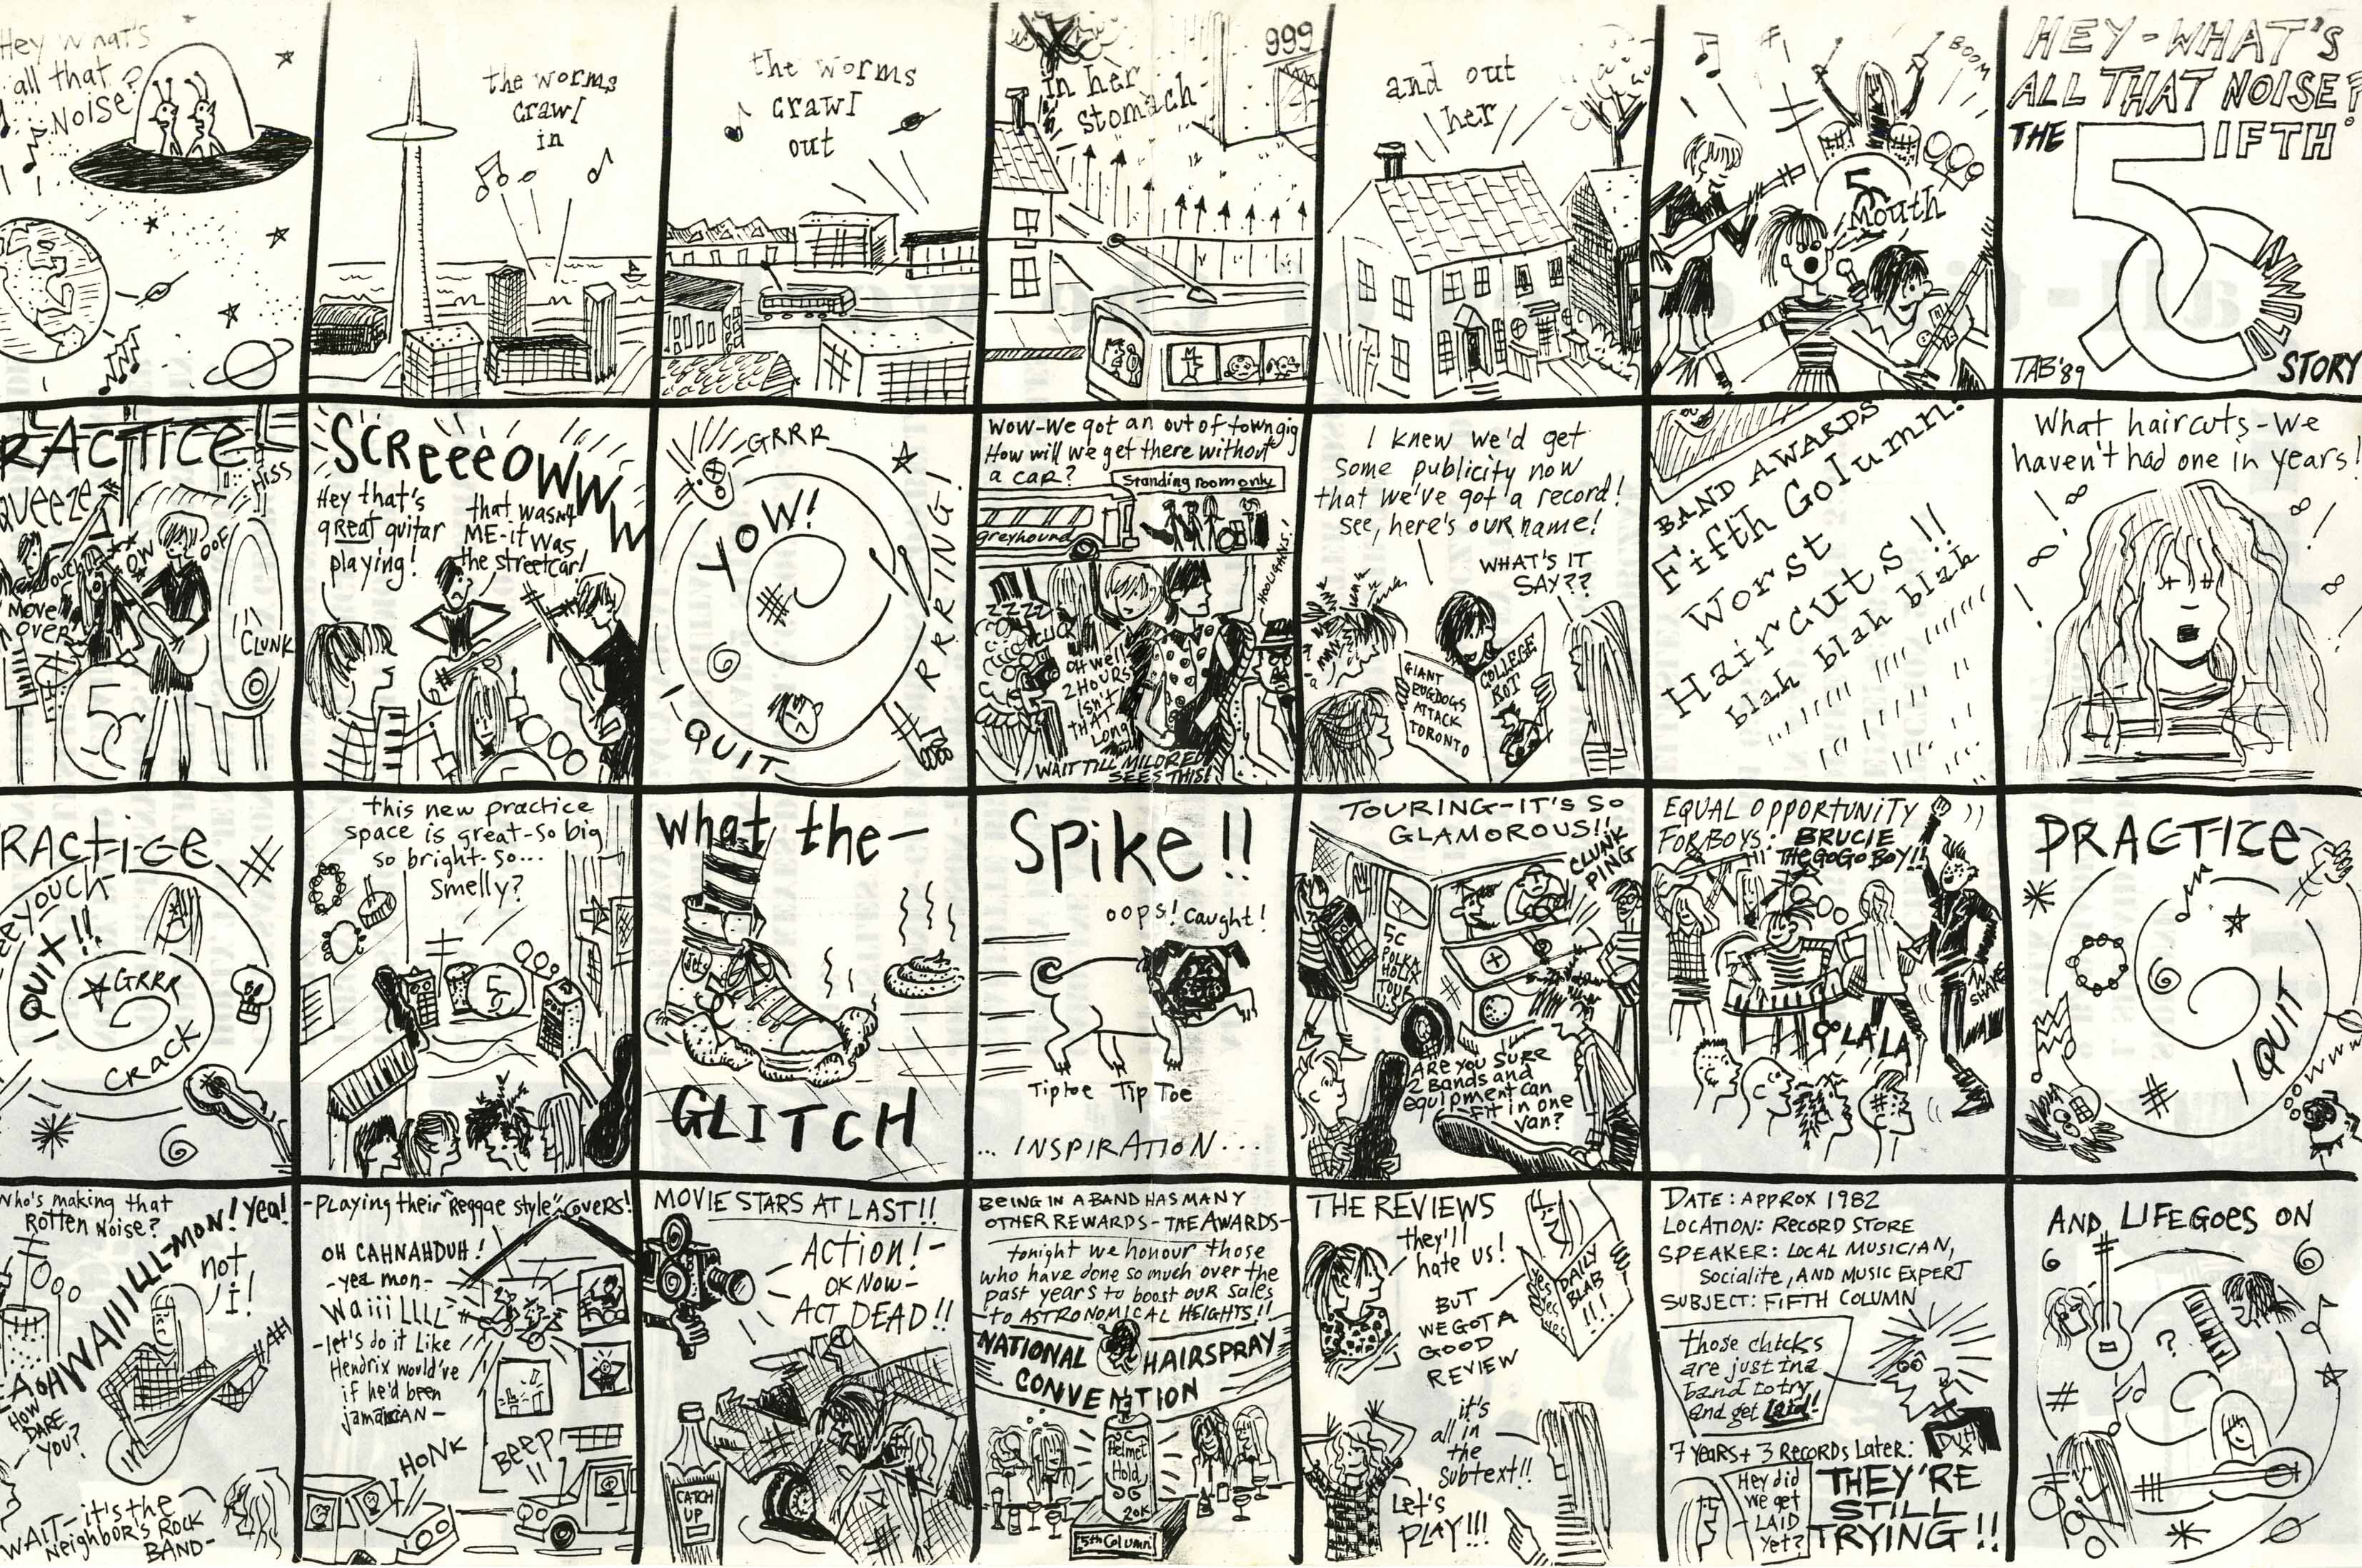 Hey What's
all that
Noise?
the worms
crawl
in
the worms
crawl
out
in her
stomach
999
and out
her
BOOM
5C
mouth
HEY-WHAT'S
ALL THAT NOISE?
THE
5IFTH
COLUMN
STORY
TAB'89
RACTICE
QUEEZE
HISS
OW
OOF
OUCH
MOVE
OVER
CLUNK
5C
SCREEEOWWWW
Hey that's
great guitar
playing!
that wasn't
ME-it was
the streetcar!
GRRR
YOW!
RRRRING!
I QUIT
WOW-We got an out of town gig
How will we get there without
a car?
Standing room only
greyhound
HOOLIGANS!
ZZZZ
OH well
2 HOURS
isn't
THAT
Long
WAIT TILL MILDRED
SEES THIS!
I knew we'd get
some publicity now
that we've got a record!
see, here's our name!
WHAT'S IT
SAY??
GIANT
RUGDOGS
ATTACK
TORONTO
COLLEGE
ROT
BAND AWARDS
Fifth Column:
Worst
Haircuts!!
blah blah blah
What haircuts-We
haven't had one in years!
RACTICE
EEEYOUCH
I QUIT!!
GRRR
CRACK
this new practice
space is great-so big
so bright-so...
smelly?
5C
What the—
GLITCH
Spike!!
oops! Caught!
Tiptoe Tip Toe
...INSPIRATION...
TOURING-IT'S SO
GLAMOROUS!!
CLUNK
PING
5C
POLKA
HOLIX
TOUR
US
ARE YOU SURE
2 Bands and
equipment can
Fit in one
Van?
EQUAL OPPORTUNITY
FOR BOYS:
BRUCIE
THE GOGO BOY!!
SHAKE
OO LA LA
PRACTICE
I QUIT
OWWW
Who's making that
ROTTEN NOISE?
WAIIIILLL-MON! Yea!
not
I!
HOW
DARE
YOU?
WAIT-it's the
Neighbor's ROCK
BAND-
-Playing their "Reggae style" Covers!
OH CAHNAHDUH!
-yea mon-
WaiiiLLLL
-let's do it Like
Hendrix would've
if he'd been
jamaican-
HONK
BEEP
!!
MOVIE STARS AT LAST!!
ACTION!-
OK NOW-
ACT DEAD!!
CATCH
UP
BEING IN A BAND HAS MANY
OTHER REWARDS-THE AWARDS-
tonight we honour those
who have done so much over the
past years to boost our sales
to ASTRONOMICAL HEIGHTS!!
NATIONAL HAIRSPRAY
CONVENTION
Helmet
Hold
5th Column
THE REVIEWS
they'll
hate us!
yes
yes
yes
DAILY
BLAB
!!!
BUT
WE GOT A
GOOD
REVIEW
it's
all in
the
subtext!!
Let's
PLAY!!!
DATE: APPROX 1982
LOCATION: RECORD STORE
SPEAKER: LOCAL MUSICIAN,
Socialite, AND MUSIC EXPERT
SUBJECT: FIFTH COLUMN
those chicks
are just in a
band to try
and get laid!
DUH
7 YEARS + 3 RECORDS LATER:
Hey did
we get
LAID
Yet?
THEY'RE
STILL
TRYING!!
AND LIFE GOES ON
?